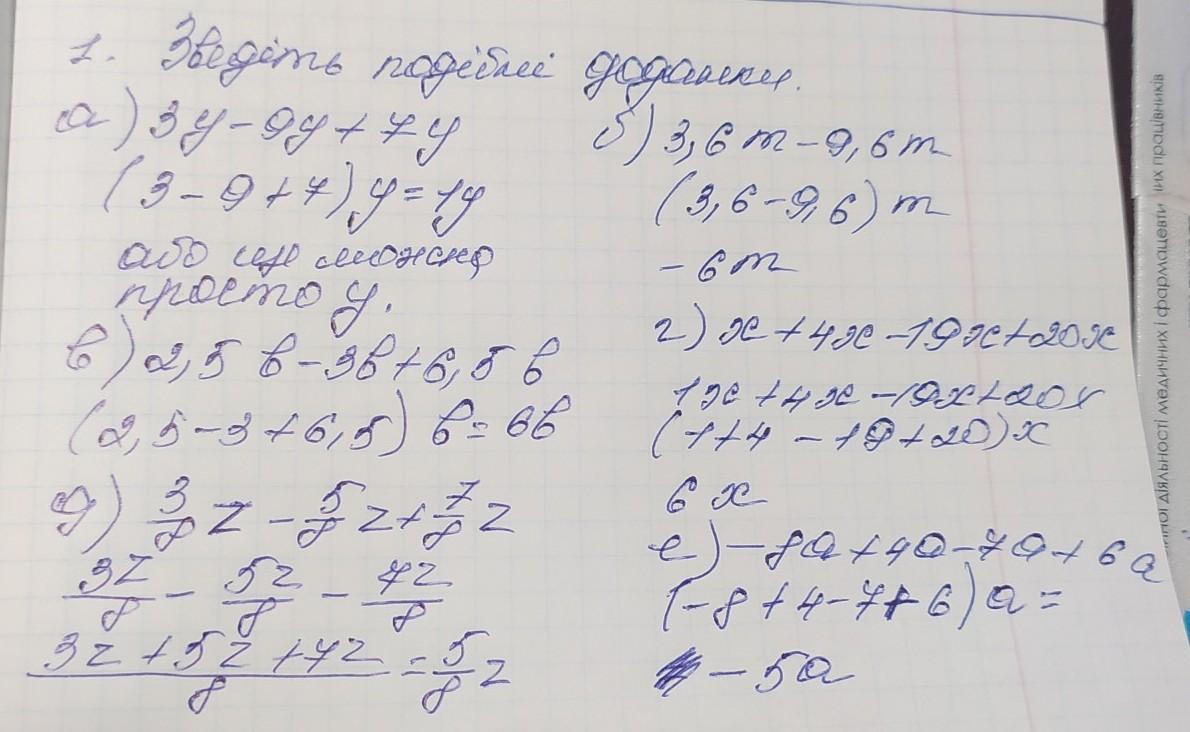 1. Зведіть подібні доданки.
а) 3y - 9y + 7y
(3 - 9 + 7) y = 1y
або ще можна
просто y.
б) 3,6m - 9,6m
(3,6 - 9,6) m
- 6m
в) 2,5 b - 3b + 6,5 b
(2,5 - 3 + 6,5) b = 6b
г) x + 4x - 19x + 20x
1x + 4x - 19x + 20x
(1 + 4 - 19 + 20) x
6x
д) 3/8 z - 5/8 z + 7/8 z
3z/8 - 5z/8 - 7z/8
3z + 5z + 7z/8 = 5/8 z
е) - 8a + 4a - 7a + 6a
(- 8 + 4 - 7 + 6) a =
- 5a
діяльності медичних і фармацевти
их працівників